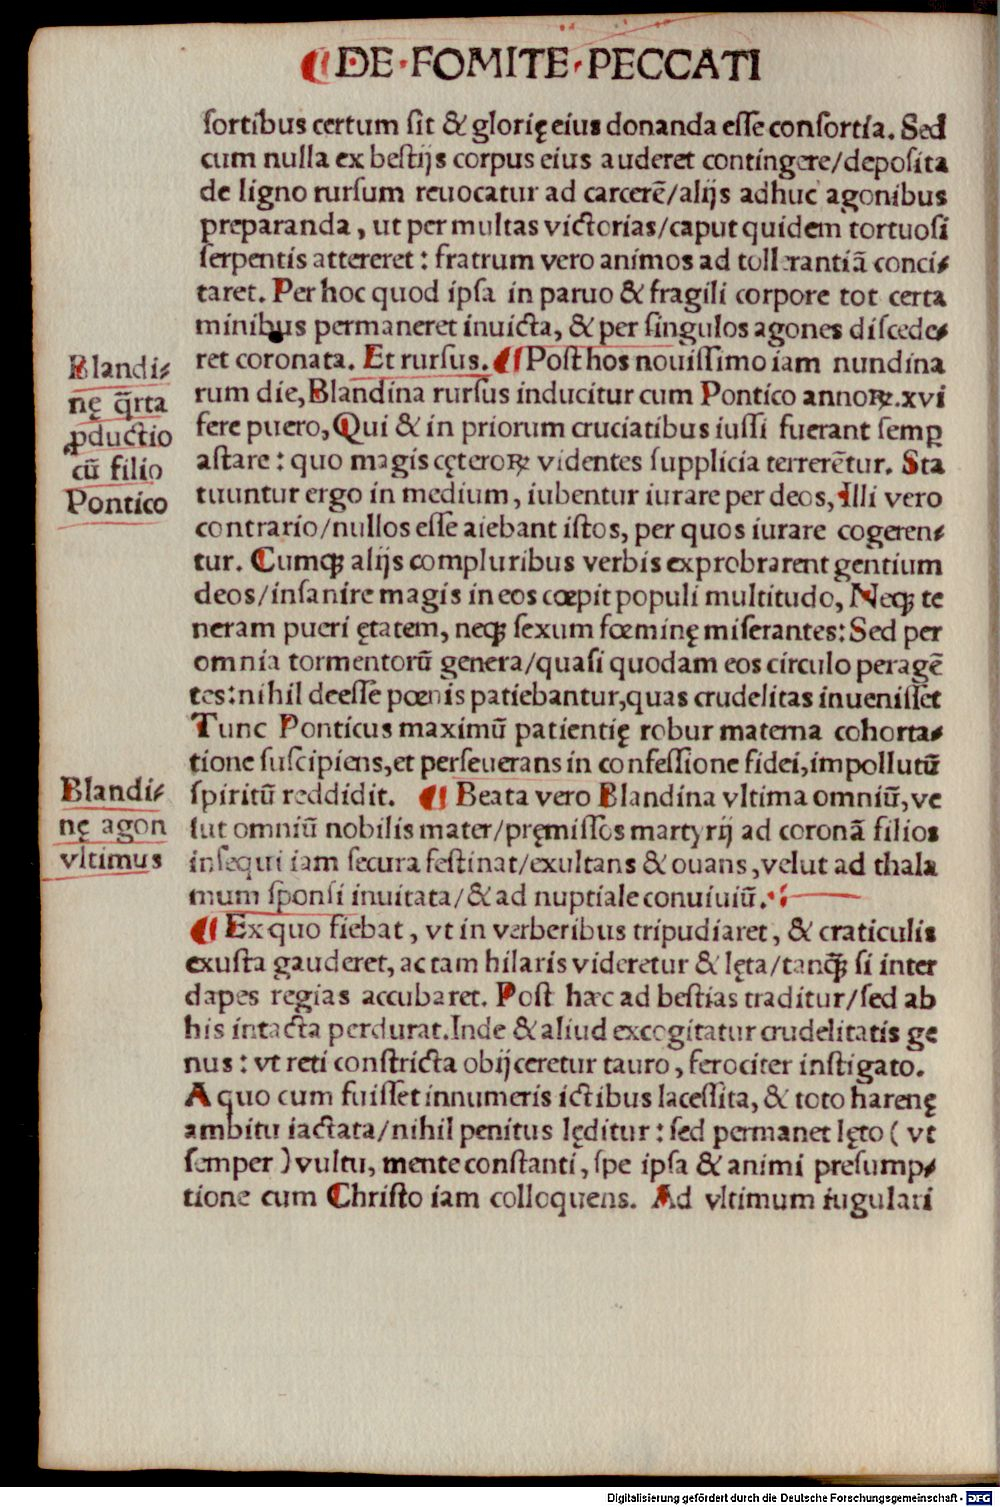 ¶ DE·FOMITE·PECCATI
ſortibus certum ſit & glorię eius donanda eſſe conſortia. Sed
cum nulla ex beſtijs corpus eius auderet contingere/depoſita
de ligno rurſum reuocatur ad carcerē/alijs adhuc agonibus
preparanda, ut per multas victorias/caput quidem tortuoſi
ſerpentis attereret: fratrum vero animos ad tollerantiā conci⸗
taret. Per hoc quod ipſa in paruo & fragili corpore tot certa
minibus permaneret inuicta, & per ſingulos agones diſcede⸗
ret coronata. Et rurſus. ¶ Poſt hos nouiſſimo iam nundina
rum die, Blandina rurſus inducitur cum Pontico annoꝝ.xvi
fere puero, Qui & in priorum cruciatibus iuſſi fuerant ſemꝑ
aſtare: quo magis cęteroꝝ videntes ſupplicia terrerētur. Sta
tuuntur ergo in medium, iubentur iurare per deos, Illi vero
contrario/nullos eſſe aiebant iſtos, per quos iurare cogeren⸗
tur. Cumqꝫ alijs compluribus verbis exprobrarent gentium
deos/inſanire magis in eos cœpit populi multitudo, Neqꝫ te
neram pueri ętatem, neqꝫ ſexum fœminę miſerantes: Sed per
omnia tormentorū genera/quaſi quodam eos circulo peragē
tes: nihil deeſſe pœnis patiebantur, quas crudelitas inueniſſet
Tunc Ponticus maximū patientię robur materna cohorta⸗
tione ſuſcipiens, et perſeuerans in confeſſione fidei, impollutū
ſpiritū reddidit. ¶ Beata vero Blandina vltima omniū, ve
lut omniū nobilis mater/pręmiſſos martyrij ad coronā filios
inſequi iam ſecura feſtinat/exultans & ouans, velut ad thala
mum ſponſi inuitata/& ad nuptiale conuiuiū.
¶ Ex quo fiebat, vt in verberibus tripudiaret, & craticulis
exuſta gauderet, ac tam hilaris videretur & lęta/tanqꝫ̄ ſi inter
dapes regias accubaret. Poſt hæc ad beſtias traditur/ſed ab
his intacta perdurat. Inde & aliud excogitatur crudelitatis ge
nus: vt reti conſtricta obijceretur tauro, ferociter inſtigato.
A quo cum fuiſſet innumeris ictibus laceſſita, & toto harenę
ambitu iactata/nihil penitus lęditur: ſed permanet lęto (vt
ſemper) vultu, mente conſtanti, ſpe ipſa & animi preſump⸗
tione cum Chriſto iam colloquens. Ad vltimum iugulari
Blandi⸗
nę q̄rta
ꝓductio
cū filio
Pontico
Blandi⸗
nę agon
vltimus
Digitalisierung gefördert durch die Deutsche Forschungsgemeinschaft - DFG